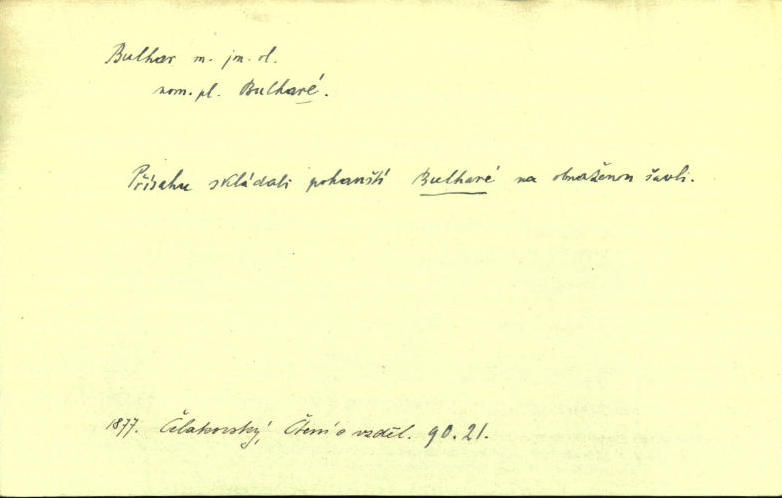 Bulhar m. jm. ob.
nom. pl. Bulharé.
Přísahu skládali pohanští Bulharé na obnaženou šavli.
1877. Čelakovský, Čtení o vzděl. 90.21.